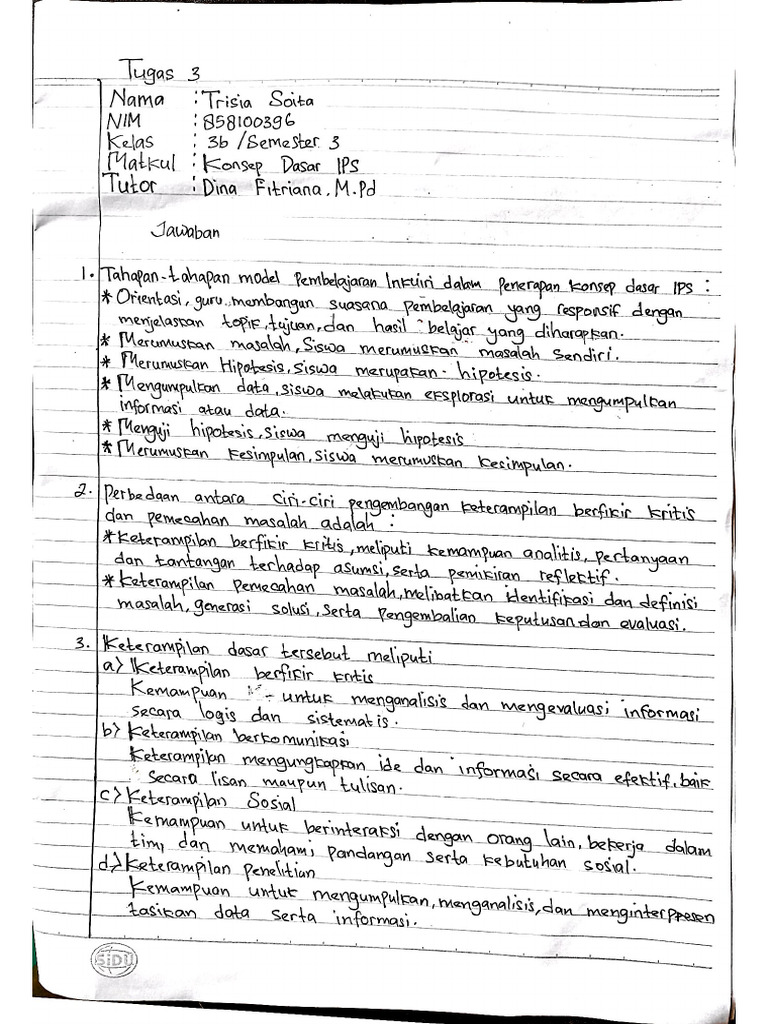 Tugas 3
Nama : Trisia Soita
NIM : 858100396
Kelas : 3b /Semester 3
Matkul : Konsep Dasar IPS
Tutor : Dina Fitriana, M.Pd
Jawaban
1. Tahapan-tahapan model Pembelajaran Inkuiri dalam penerapan konsep dasar IPS :
* Orientasi, guru membangun suasana pembelajaran yang responsif dengan
menjelaskan topik, tujuan, dan hasil belajar yang diharapkan.
* Merumuskan masalah, Siswa merumuskan masalah sendiri.
* Merumuskan Hipotesis, Siswa merupakan hipotesis.
* Mengumpulkan data, siswa melakukan eksplorasi untuk mengumpulkan
informasi atau data.
* Menguji hipotesis, siswa menguji hipotesis
* Merumuskan kesimpulan, siswa merumuskan kesimpulan.
2. Perbedaan antara ciri-ciri pengembangan keterampilan berfikir kritis
dan pemecahan masalah adalah :
* Keterampilan berfikir kritis, meliputi kemampuan analitis, pertanyaan
dan tantangan terhadap asumsi, serta pemikiran reflektif.
* Keterampilan pemecahan masalah, melibatkan identifikasi dan definisi
masalah, generasi solusi, serta pengembalian keputusan dan evaluasi.
3. Keterampilan dasar tersebut meliputi
a) Keterampilan berfikir kritis
Kemampuan - untuk menganalisis dan mengevaluasi informasi
secara logis dan sistematis.
b) Keterampilan berkomunikasi
Keterampilan mengungkapkan ide dan informasi secara efektif, baik
secara lisan maupun tulisan.
c) Keterampilan Sosial
Kemampuan untuk berinteraksi dengan orang lain, bekerja dalam
tim, dan memahami pandangan serta kebutuhan sosial.
d) Keterampilan penelitian
Kemampuan untuk mengumpulkan, menganalisis, dan menginterppresen
tasikan data serta informasi.
SiDU